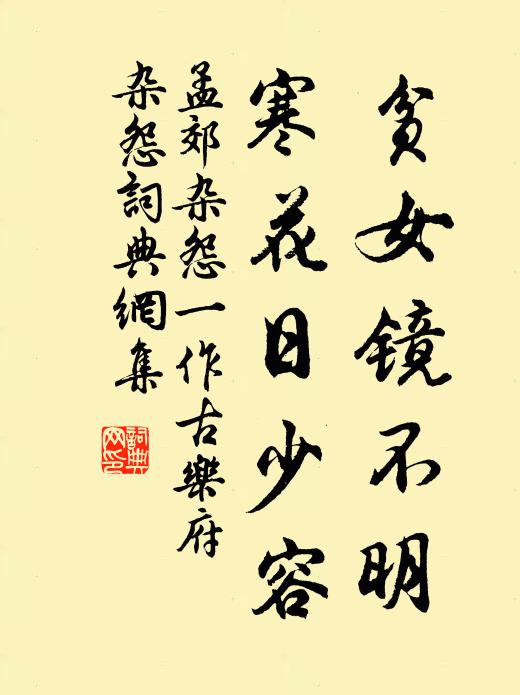 贫女镜不明
寒花日少容
孟郊杂怨一作古樂府
杂怨詞典網集
詞典
网印